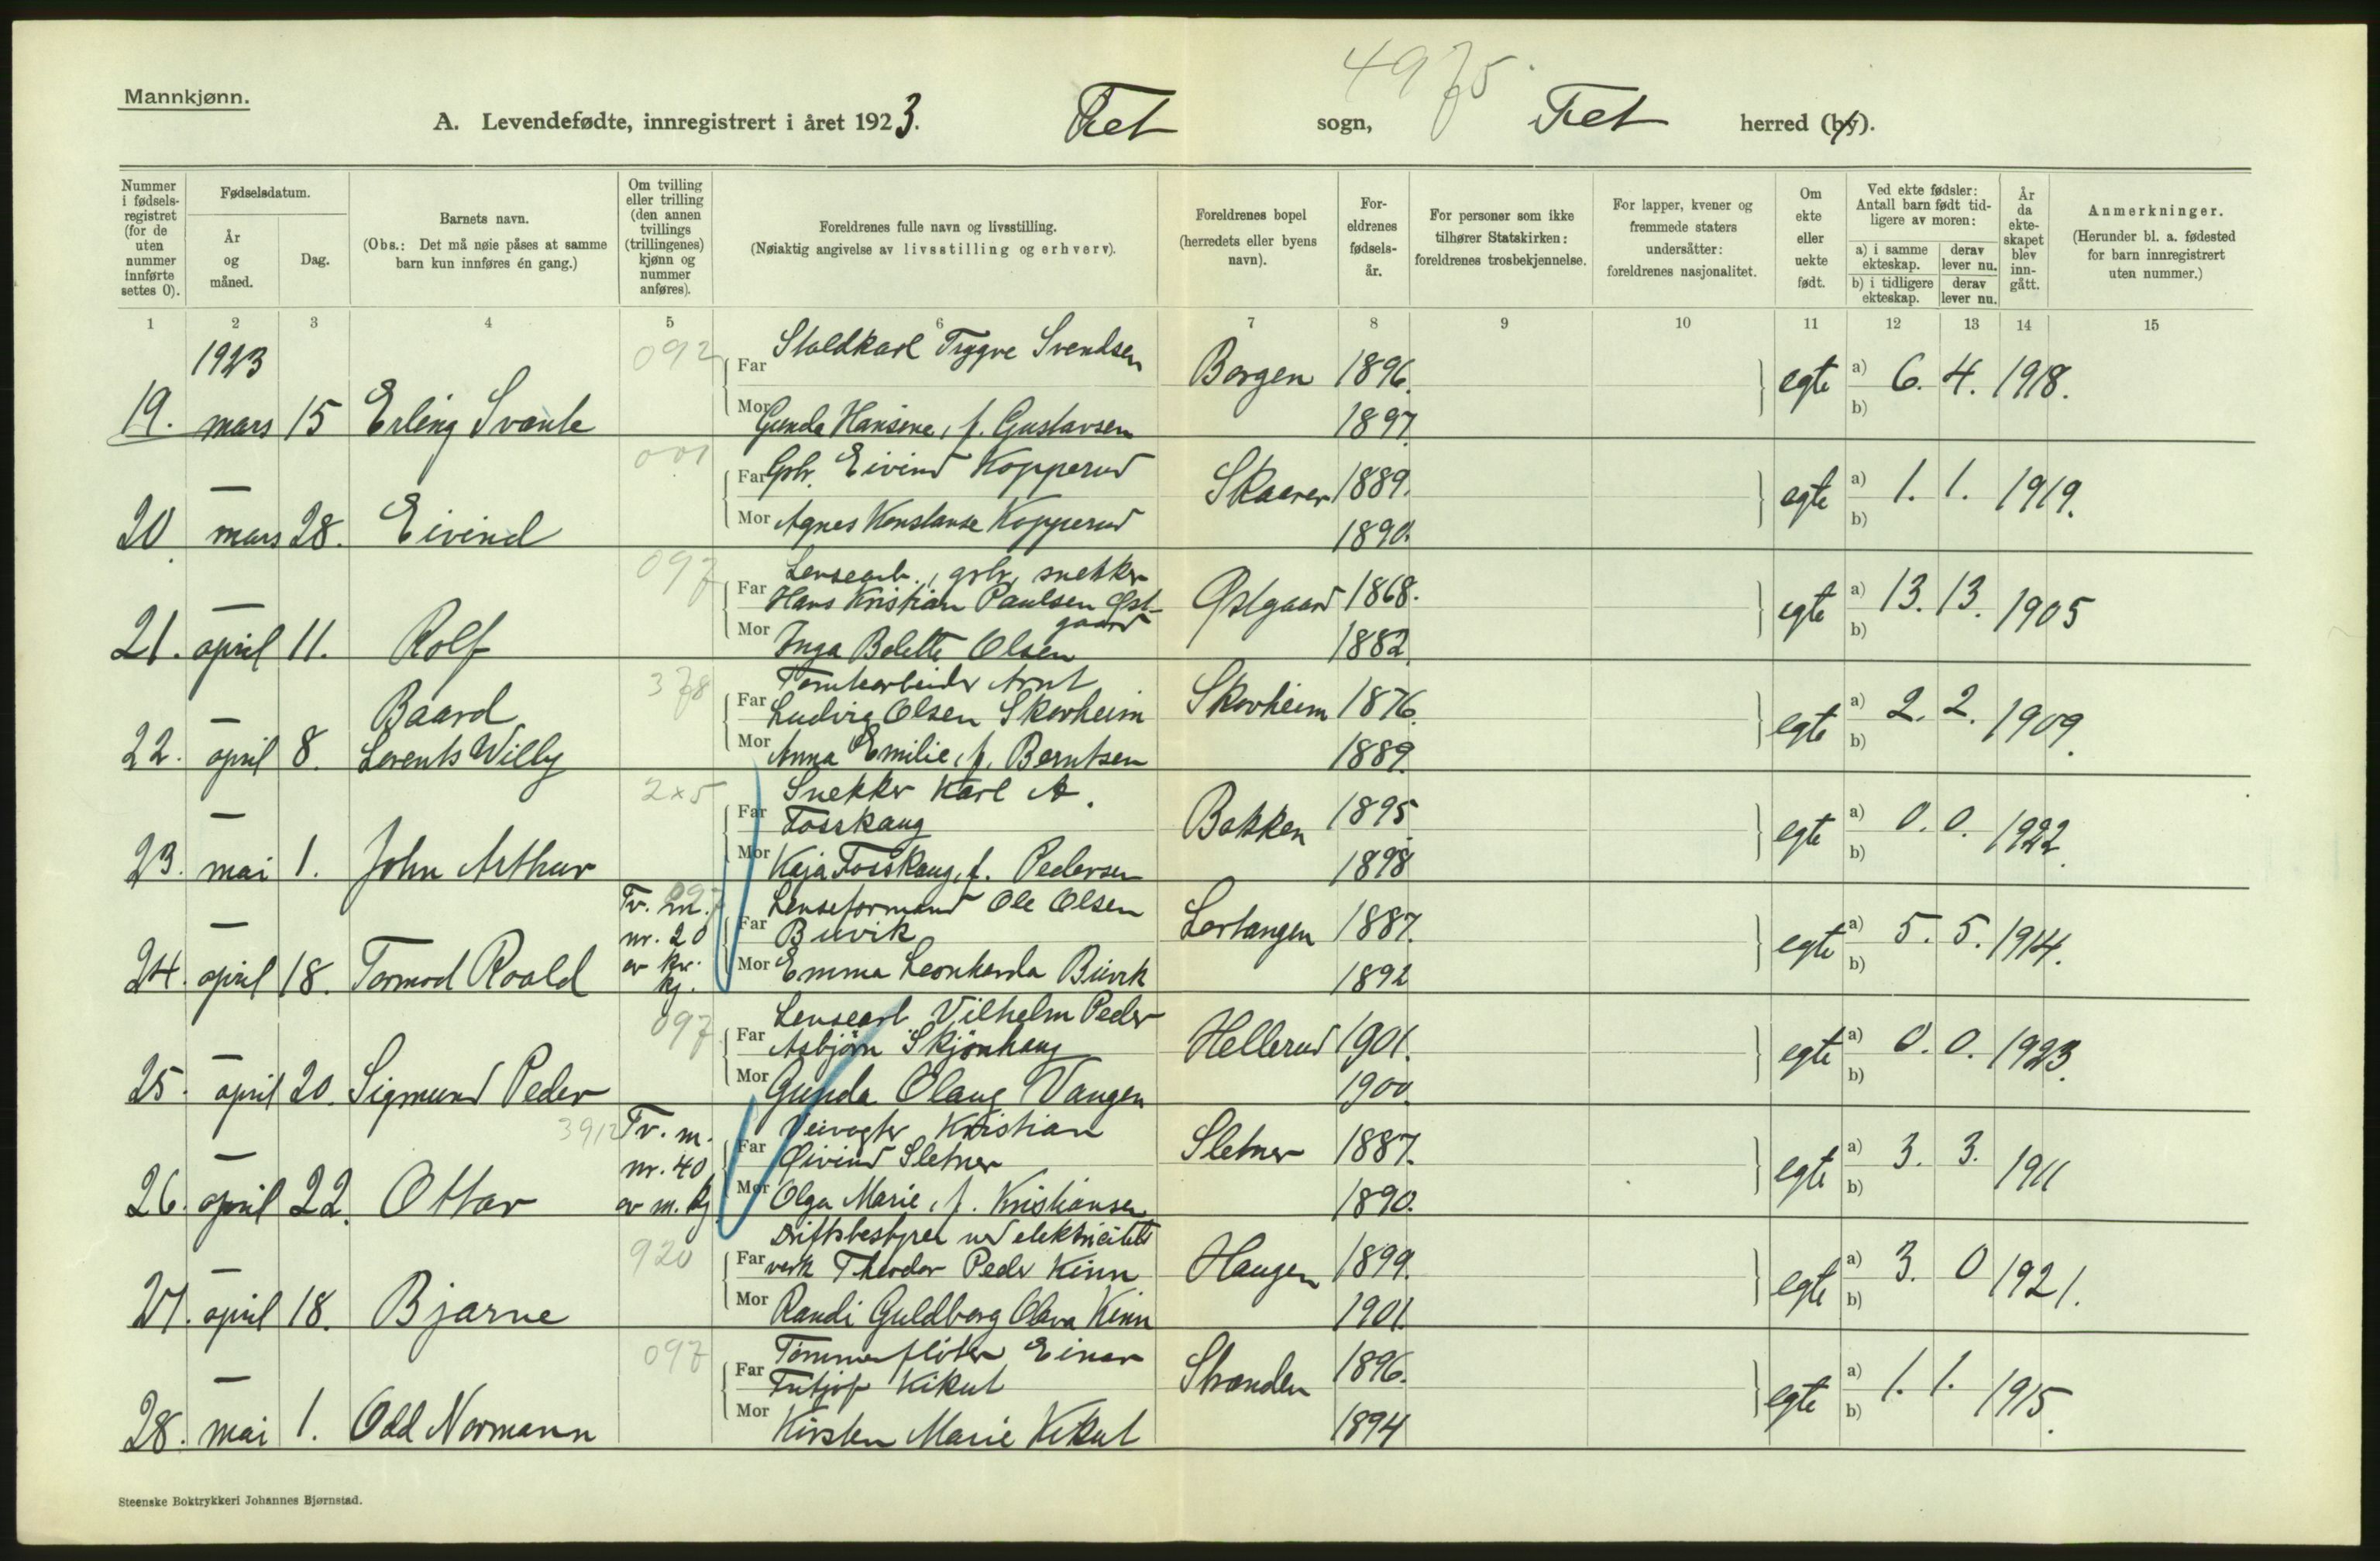 Mannkjønn.
4975
A. Levendefødte, innregistrert i året 1923. Fet sogn, Fet herred (by).
Nummer i fødselsregistret (for de uten nummer innførte settes 0).
Fødselsdatum.
År og måned.
Dag.
Barnets navn.
(Obs.: Det må nøie påses at samme barn kun innføres én gang.)
Om tvilling eller trilling (den annen tvillings (trillingenes) kjønn og nummer anføres).
Foreldrenes fulle navn og livsstilling.
(Nøiaktig angivelse av livsstilling og erhverv).
Foreldrenes bopel (herredets eller byens navn).
Foreldrenes fødselsår.
For personer som ikke tilhører Statskirken: foreldrenes trosbekjennelse.
For lapper, kvener og fremmede staters undersåtter: foreldrenes nasjonalitet.
Om ekte eller uekte født.
Ved ekte fødsler: Antall barn født tidligere av moren:
a) i samme ekteskap. derav lever nu.
b) i tidligere ekteskap. derav lever nu.
År da ekteskapet blev inngått.
Anmerkninger.
(Herunder bl. a. fødested for barn innregistrert uten nummer.)
1 2 3 4 5 6 7 8 9 10 11 12 13 14 15
1923 092 Far Staldkarl Trygve Svendsen Borgen 1896. egte a) 6. 4. 1918.
19. mars 15 Erling Svante Mor Gunda Hansine, f. Gustavsen 1897. b)
001 Far Gbr. Eivind Kopperud Skaarer 1889. egte a) 1. 1. 1919.
20 — mars 28. Eivind Mor Agnes Konstanse Kopperud 1890. b)
097 Lensearb., gbr, snekker
Far Hans Kristian Paulsen Østgaard Østgaard 1868. egte a) 13. 13. 1905
21. — april 11. Rolf Mor Inga Bolette Olsen 1882. b)
378 Tomtearbeider Arnt
Baard Far Ludvig Olsen Skovheim Skovheim 1876. egte a) 2. 2. 1909.
22. — april 8. Lorents Willy Mor Anna Emilie, f. Berntsen 1889. b)
2x5 Snekker Karl A.
Far Fosskaug Bakken 1895 egte a) 0. 0. 1922.
23. — mai 1. John Arthur Mor Kaja Fosskaug, f. Pedersen 1898 b)
Tv. m. 097 Lenseformand Ole Olsen
nr. 20 Far Buvik Lertangen 1887. egte a) 5. 5. 1914.
24. — april 18. Tormod Roald av kv. kj. Mor Emma Leonharda Buvik 1892 b)
097 Lensearb. Vilhelm Peder
Far Asbjørn Skjønhaug Hellerud 1901. egte a) 0. 0. 1923.
25. — april 20. Sigmund Peder Mor Gunda Olaug Vangen 1900. b)
3912 Tv. m. Veivogter Kristian
nr. 40 Far Øivind Sletner Sletner 1887. egte a) 3. 3. 1911
26. — april 22. Ottar av m. kj. Mor Olga Marie, f. Kristiansen 1890. b)
920 Driftsbestyrer ved elektricitets
Far verk Theodor Peder Kinn Haugen 1899. egte a) 3. 0 1921.
27. — april 18. Bjarne Mor Randi Guldborg Olava Kinn 1901. b)
097 Tømmerfløter Einar
Far Fritjof Kikut Stranden 1896. egte a) 1. 1. 1915.
28. — mai 1. Odd Normann Mor Kirsten Marie Kikut 1894 b)
Steenske Boktrykkeri Johannes Bjørnstad.